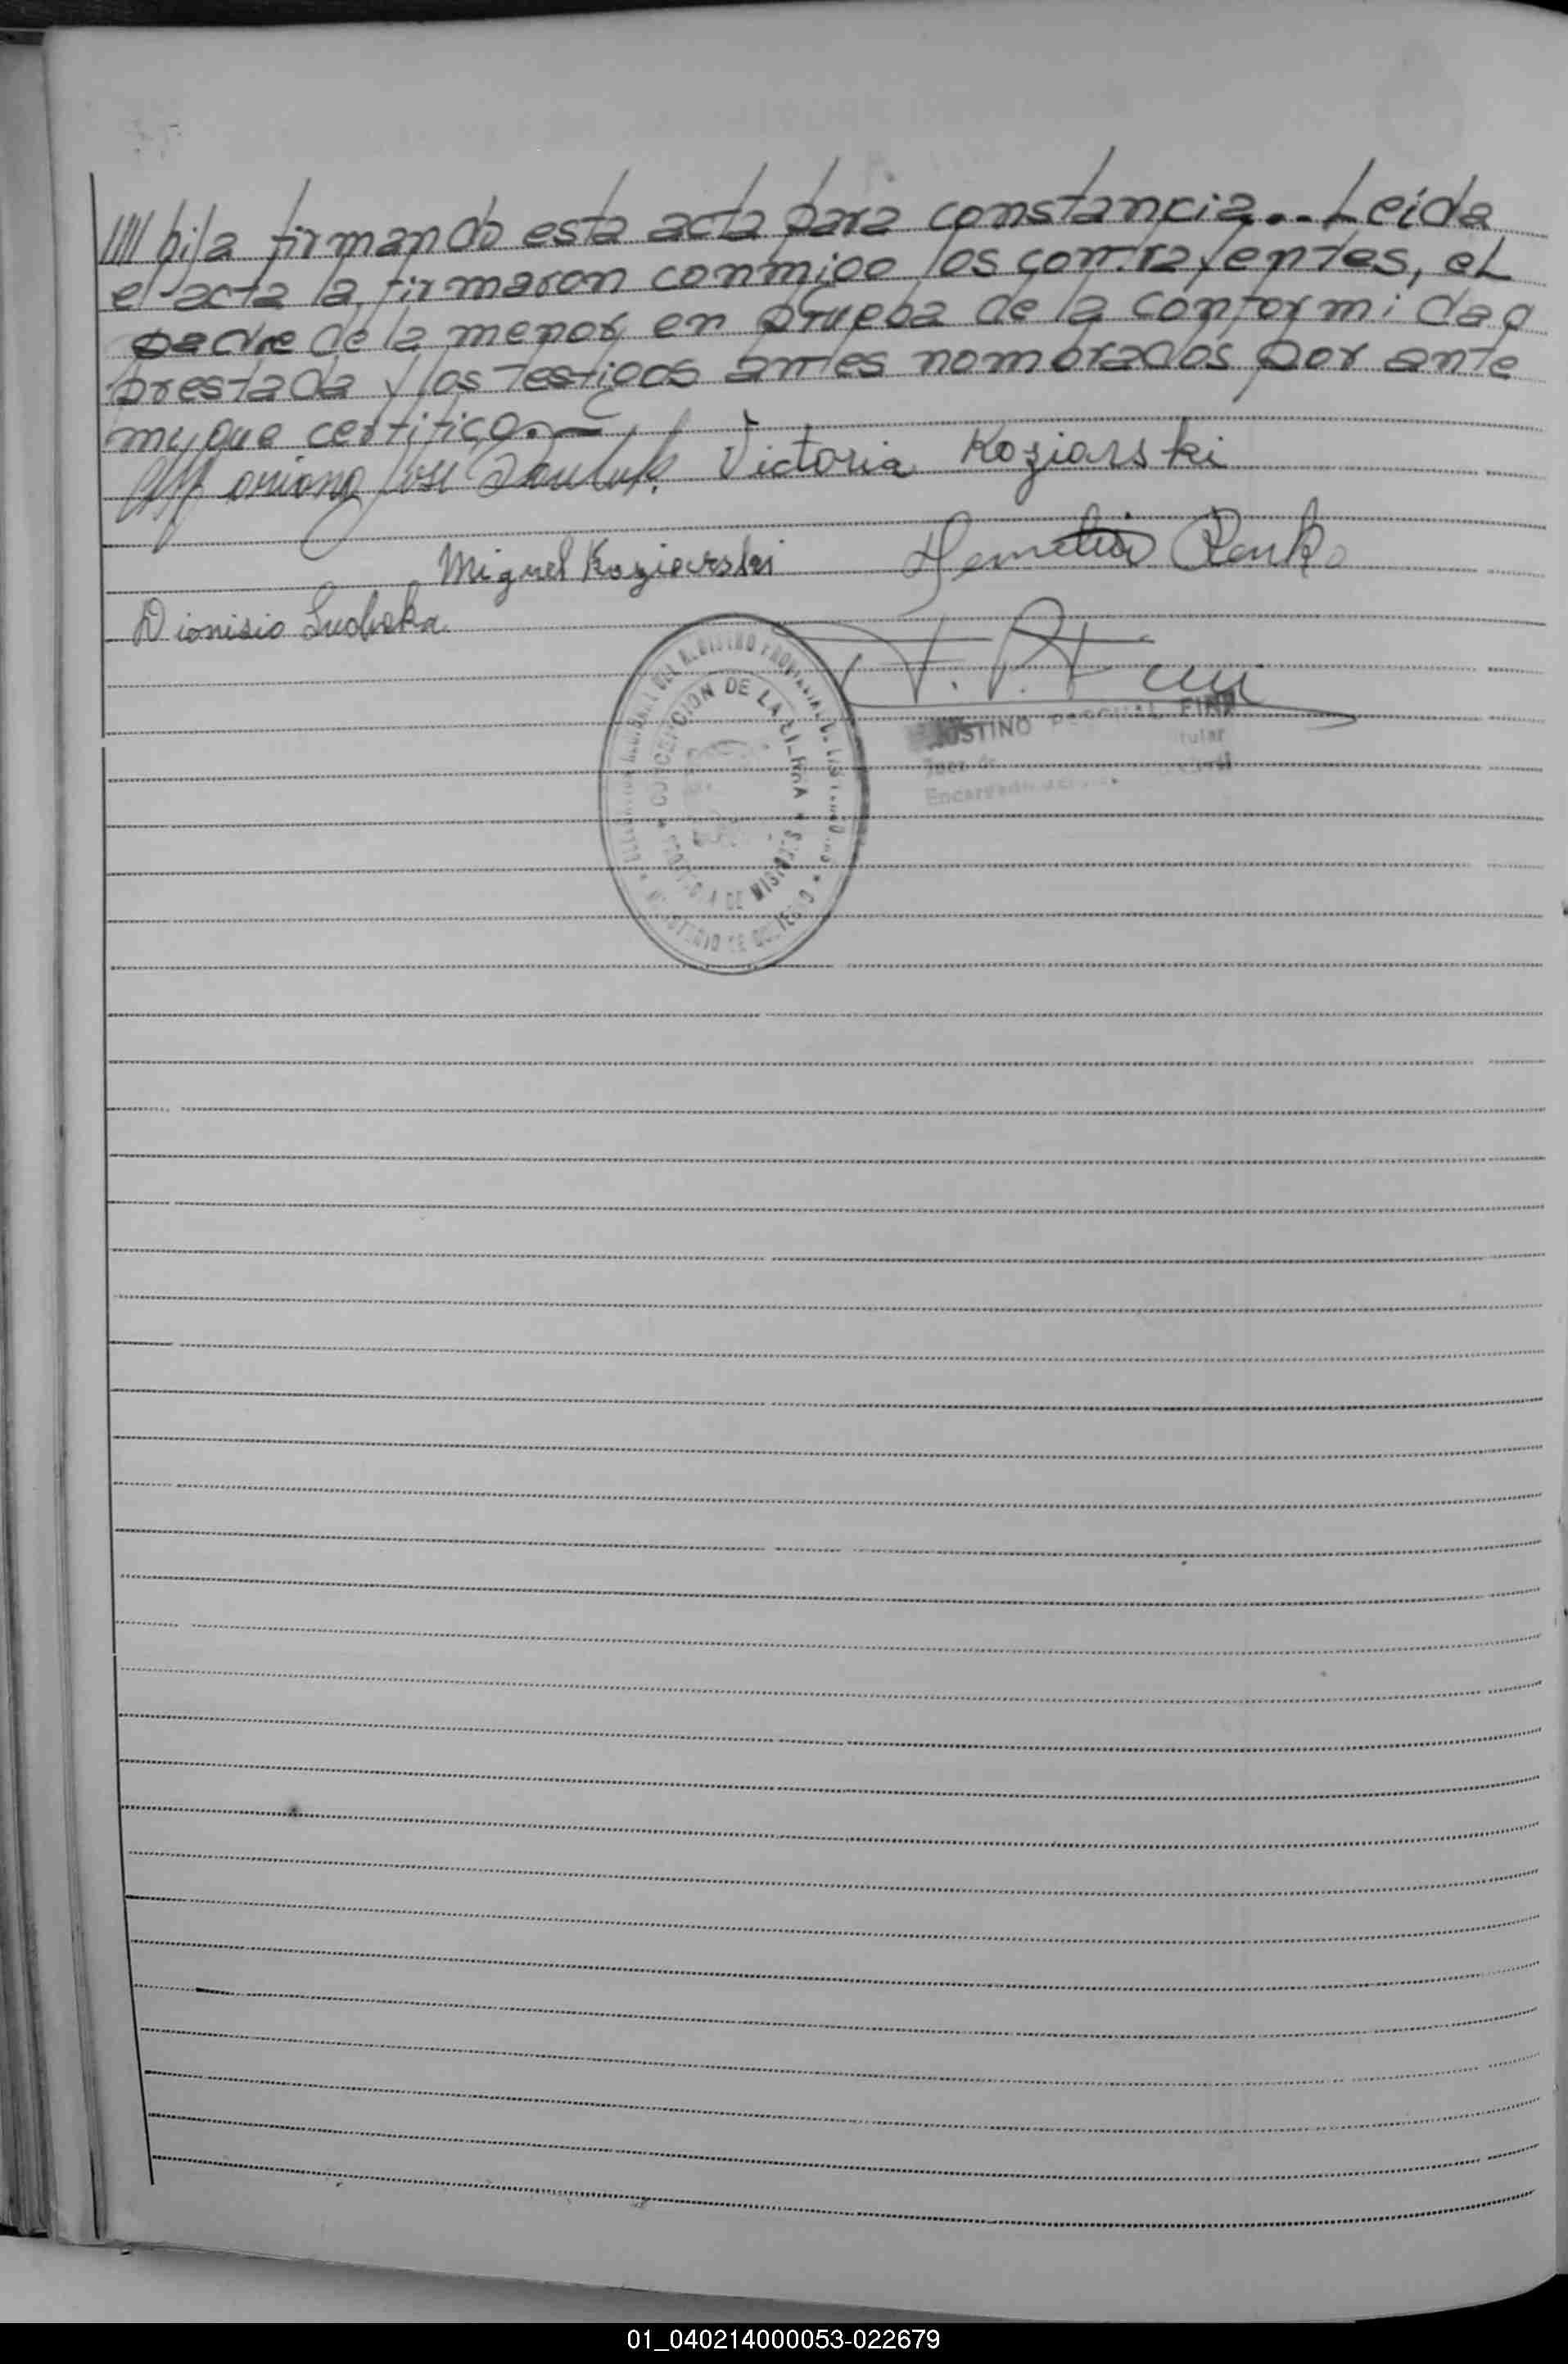 //// hija firmando esta acta para constancia.. Leída
el acta la firmaron conmigo los contrayentes, el
padre de la menor en prueba de la conformidad
prestada y los testigos antes nombrados por ante
mí, que certifico.-
Mariano José Victoria Koziarski
Miguel Koziarski Demetrio Renko
Dionisio
CONCEPCION DE LA SIERRA
MINISTERIO DE GOBIERNO
DE MISIONES
PASCUAL
titular
Juez de
Encargado
01_040214000053-022679